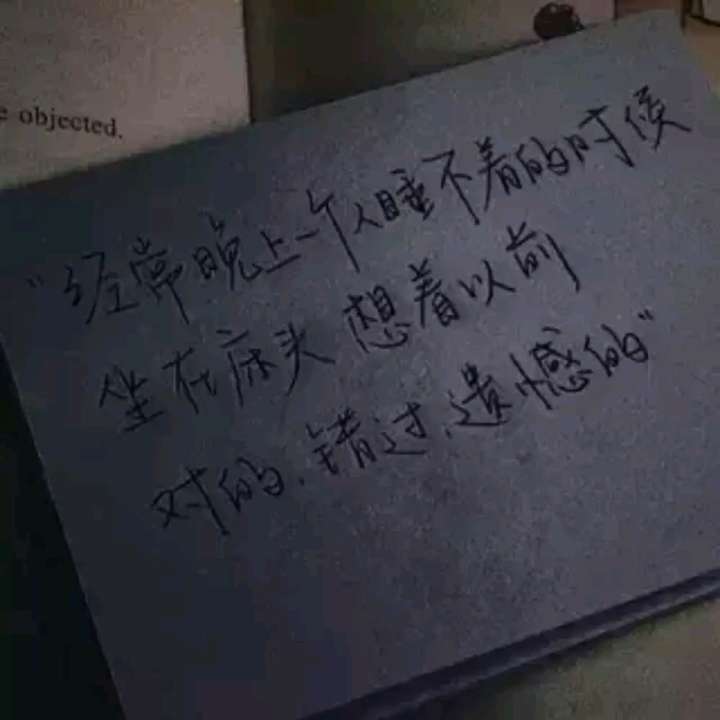 e objected.
“经常晚上一个人睡不着的时候
坐在床头 想着以前
对的、错过、遗憾的”